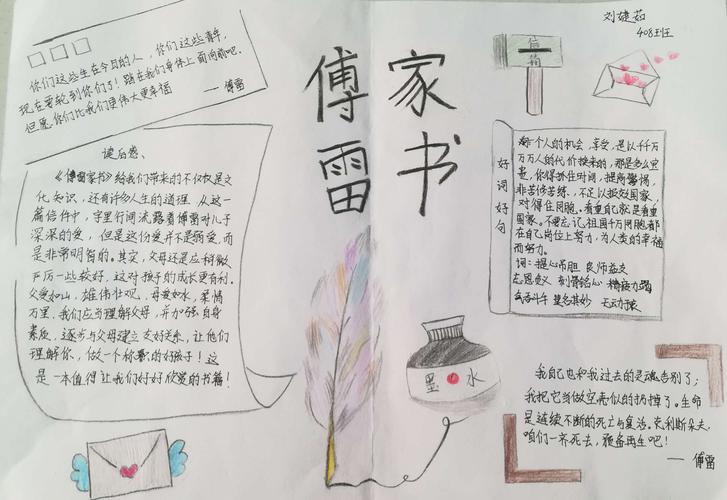 刘婕茹
408班
你们这些生在今日的人，你们这些青年，
现在要轮到你们了！踏在我们身体上面向前吧。
但愿你们比我们更伟大更幸福
——傅雷
傅雷
家书
信箱
读后感、
《傅雷家书》给我们带来的不仅仅是文
化知识，还有许多人生的道理，从这一
篇信件中，字里行间流露着傅雷对儿子
深深的爱，但是这份爱并不是溺爱，而
是非常明智的。其实，父母还是应稍微
严厉一些较好，这对孩子的成长更有利。
父爱如山，雄伟壮观，母爱如水，柔情
万里，我们应当理解父母，并加强自身
素质，逐步与父母建立友好关系，让他们
理解你，做一个称职的好孩子！这
是一本值得让我们好好欣赏的书籍！
好词好句
一个人的机会，享受，是以千千万
万万人的代价换来的，那是多么宝
贵，你得抓住时间，提高警惕，
非苦修苦练，不足以报效国家，
对得住同胞。看重自己就是看重
国家。不要忘记祖国千万同胞都
在自己岗位上努力，为人类的幸福
而努力。
词：提心吊胆 良师益文
忘恩负义 刻骨铭心 精疲力竭
气吞斗牛 莫名其妙
墨水
我自己也和我过去的灵魂告别了；
我把它当做空壳似的扔掉了。生命
是连续不断的死亡与复活。克利斯朵夫，
咱们一齐死去，预备再生吧！
——傅雷